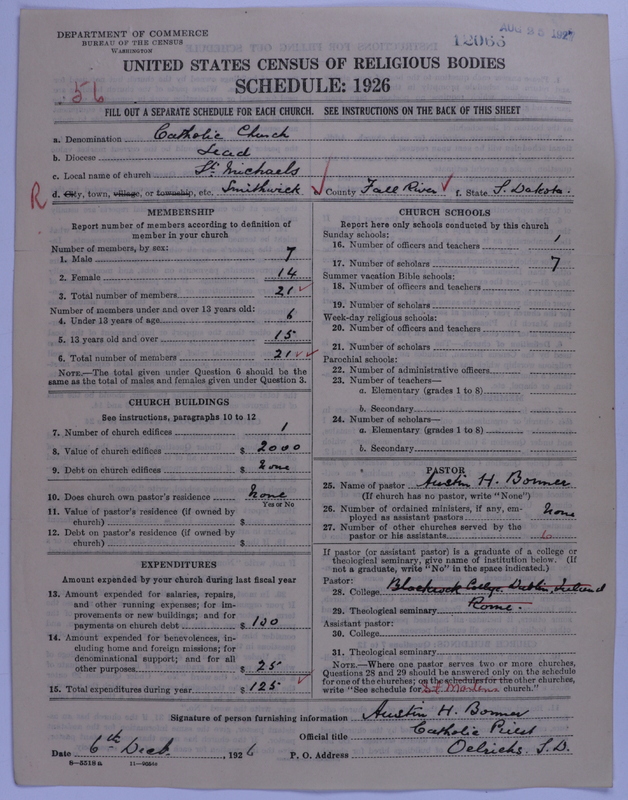 DEPARTMENT OF COMMERCE
BUREAU OF THE CENSUS
WASHINGTON
12063
AUG 25 1927
UNITED STATES CENSUS OF RELIGIOUS BODIES
SCHEDULE: 1926
56
FILL OUT A SEPARATE SCHEDULE FOR EACH CHURCH. SEE INSTRUCTIONS ON THE BACK OF THIS SHEET
a. Denomination Catholic Church
b. Diocese Lead
c. Local name of church St. Michaels
R d. City, town, village, or township, etc. Smithwick County Fall River f. State S. Dakota.
MEMBERSHIP
Report number of members according to definition of
member in your church
Number of members, by sex:
1. Male 7
2. Female 14
3. Total number of members 21
Number of members under and over 13 years old:
4. Under 13 years of age 6
5. 13 years old and over 15
6. Total number of members 21
NOTE.—The total given under Question 6 should be the
same as the total of males and females given under Question 3.
CHURCH BUILDINGS
See instructions, paragraphs 10 to 12
7. Number of church edifices 1
8. Value of church edifices $ 2000
9. Debt on church edifices $ none
10. Does church own pastor's residence none
Yes or No
11. Value of pastor's residence (if owned by
church) $
12. Debt on pastor's residence (if owned by
church) $
EXPENDITURES
Amount expended by your church during last fiscal year
13. Amount expended for salaries, repairs,
and other running expenses; for im-
provements or new buildings; and for
payments on church debt $ 100
14. Amount expended for benevolences, in-
cluding home and foreign missions; for
denominational support; and for all
other purposes $ 25
15. Total expenditures during year $ 125
CHURCH SCHOOLS
Report here only schools conducted by this church
Sunday schools:
16. Number of officers and teachers 1
17. Number of scholars 7
Summer vacation Bible schools:
18. Number of officers and teachers
19. Number of scholars
Week-day religious schools:
20. Number of officers and teachers
21. Number of scholars
Parochial schools:
22. Number of administrative officers
23. Number of teachers—
a. Elementary (grades 1 to 8)
b. Secondary
24. Number of scholars—
a. Elementary (grades 1 to 8)
b. Secondary
PASTOR
25. Name of pastor Austin H. Bonner
(If church has no pastor, write "None")
26. Number of ordained ministers, if any, em-
ployed as assistant pastors None
27. Number of other churches served by the
pastor or his assistants 6
If pastor (or assistant pastor) is a graduate of a college or
theological seminary, give name of institution below. (If
not a graduate, write "No" in the space indicated.)
Pastor:
28. College Blackrock College. Dublin, Ireland
29. Theological seminary Rome.
Assistant pastor:
30. College
31. Theological seminary
NOTE.—Where one pastor serves two or more churches,
Questions 28 and 29 should be answered only on the schedule
for one of the churches; on the schedules for the other churches,
write "See schedule for St. Martens church."
Signature of person furnishing information Austin H. Bonner
Official title Catholic Priest
Date 6th Dec. , 1926 P. O. Address Oelrichs. S.D.
8—5518a 11—9056a